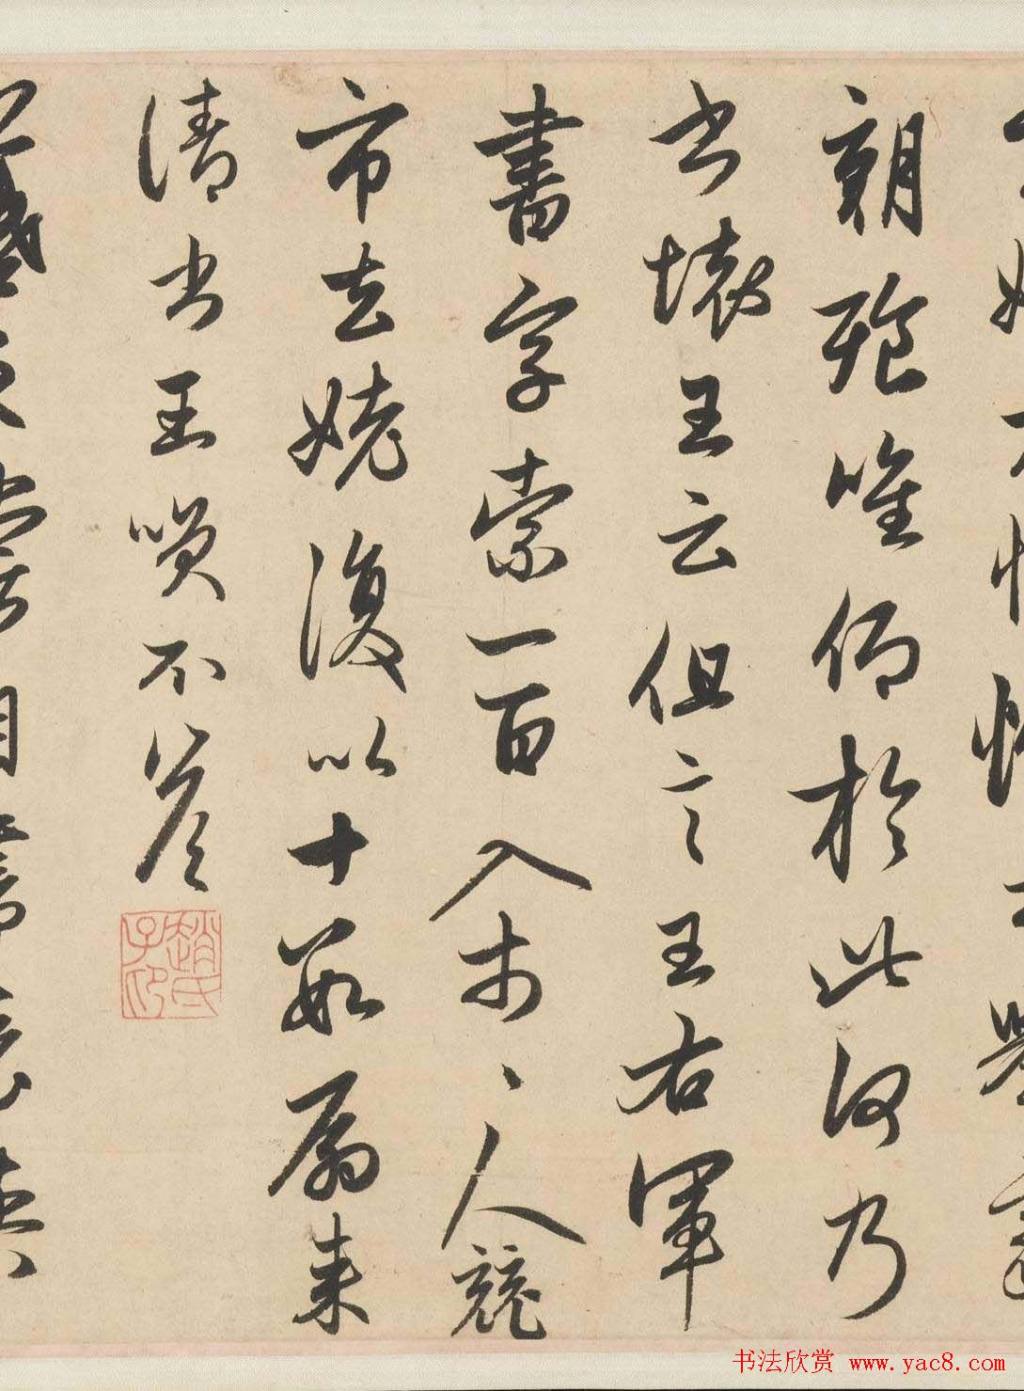 朝飱唯仰於此何乃
書壞王云但言王右軍
書字索一百入市〻人競
市去姥復以十數扇來
請書王笑不答
趙氏子昂
书法欣赏 www.yac8.com